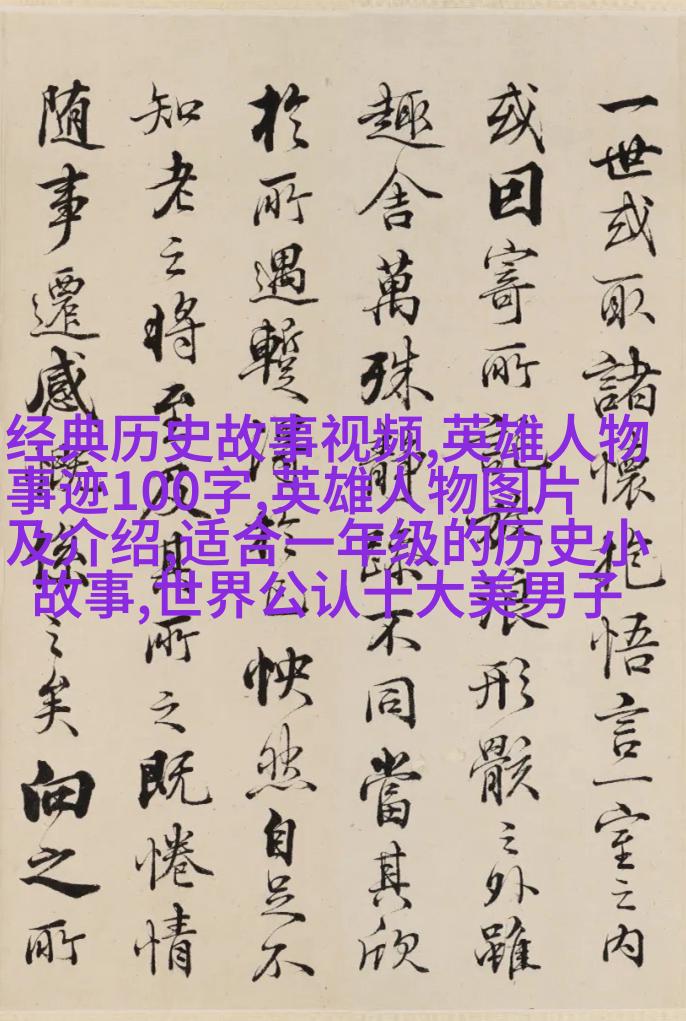 一世或取諸懷抱悟言一室之内
或因寄所託放浪形骸之外雖
趣舍萬殊靜躁不同當其欣
於所遇蹔得於己怏然自足不
知老之将至及其所之既惓情
随事遷感慨係之矣向之所
经典历史故事视频,英雄人物
事迹100字,英雄人物图片
及介绍,适合一年级的历史小
故事,世界公认十大美男子